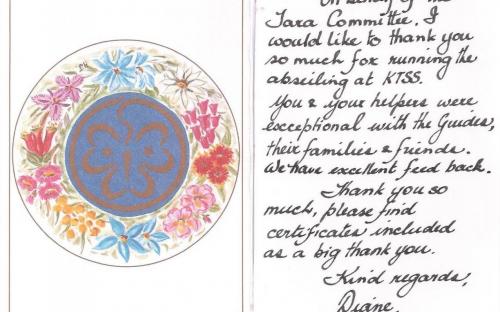 On behalf of the
Tara Committee, I
would like to thank you
so much for running the
abseiling at KTSS.
You & your helpers were
exceptional with the Guides,
their families & friends.
We have excellent feed back.
Thank you so
much, please find
certificates included
as a big thank you.
Kind regards,
Diane.